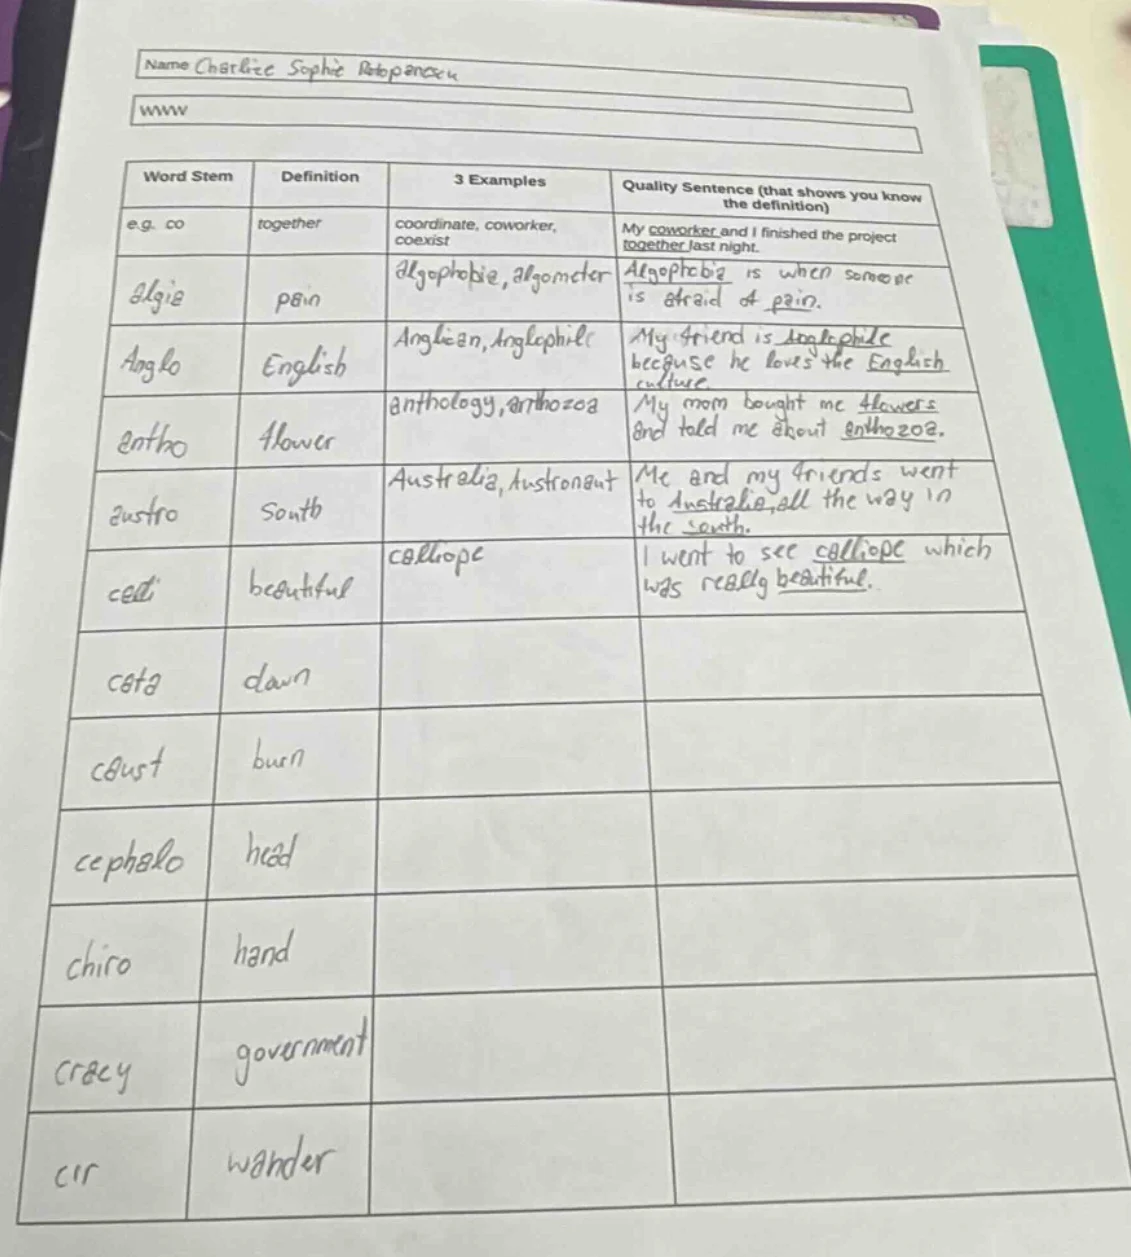 Name Charlize Sophie
WWW
Word Stem Definition 3 Examples Quality Sentence (that shows you know
the definition)
e.g. co together coordinate, coworker, My coworker and I finished the project
coexist together last night.
algia pain algophobia, algometer Algophobia is when someone
is afraid of pain.
Anglo English Anglican, Anglophile My friend is Anglophile
because he loves the English
culture.
antho flower anthology, anthozoa My mom bought me flowers
and told me about anthozoa.
austro south Australia, Austronaut Me and my friends went
to Australia, all the way in
the south.
calli beautiful calliope I went to see calliope which
was really beautiful.
cata down
caust burn
cephalo head
chiro hand
cracy government
cir wander